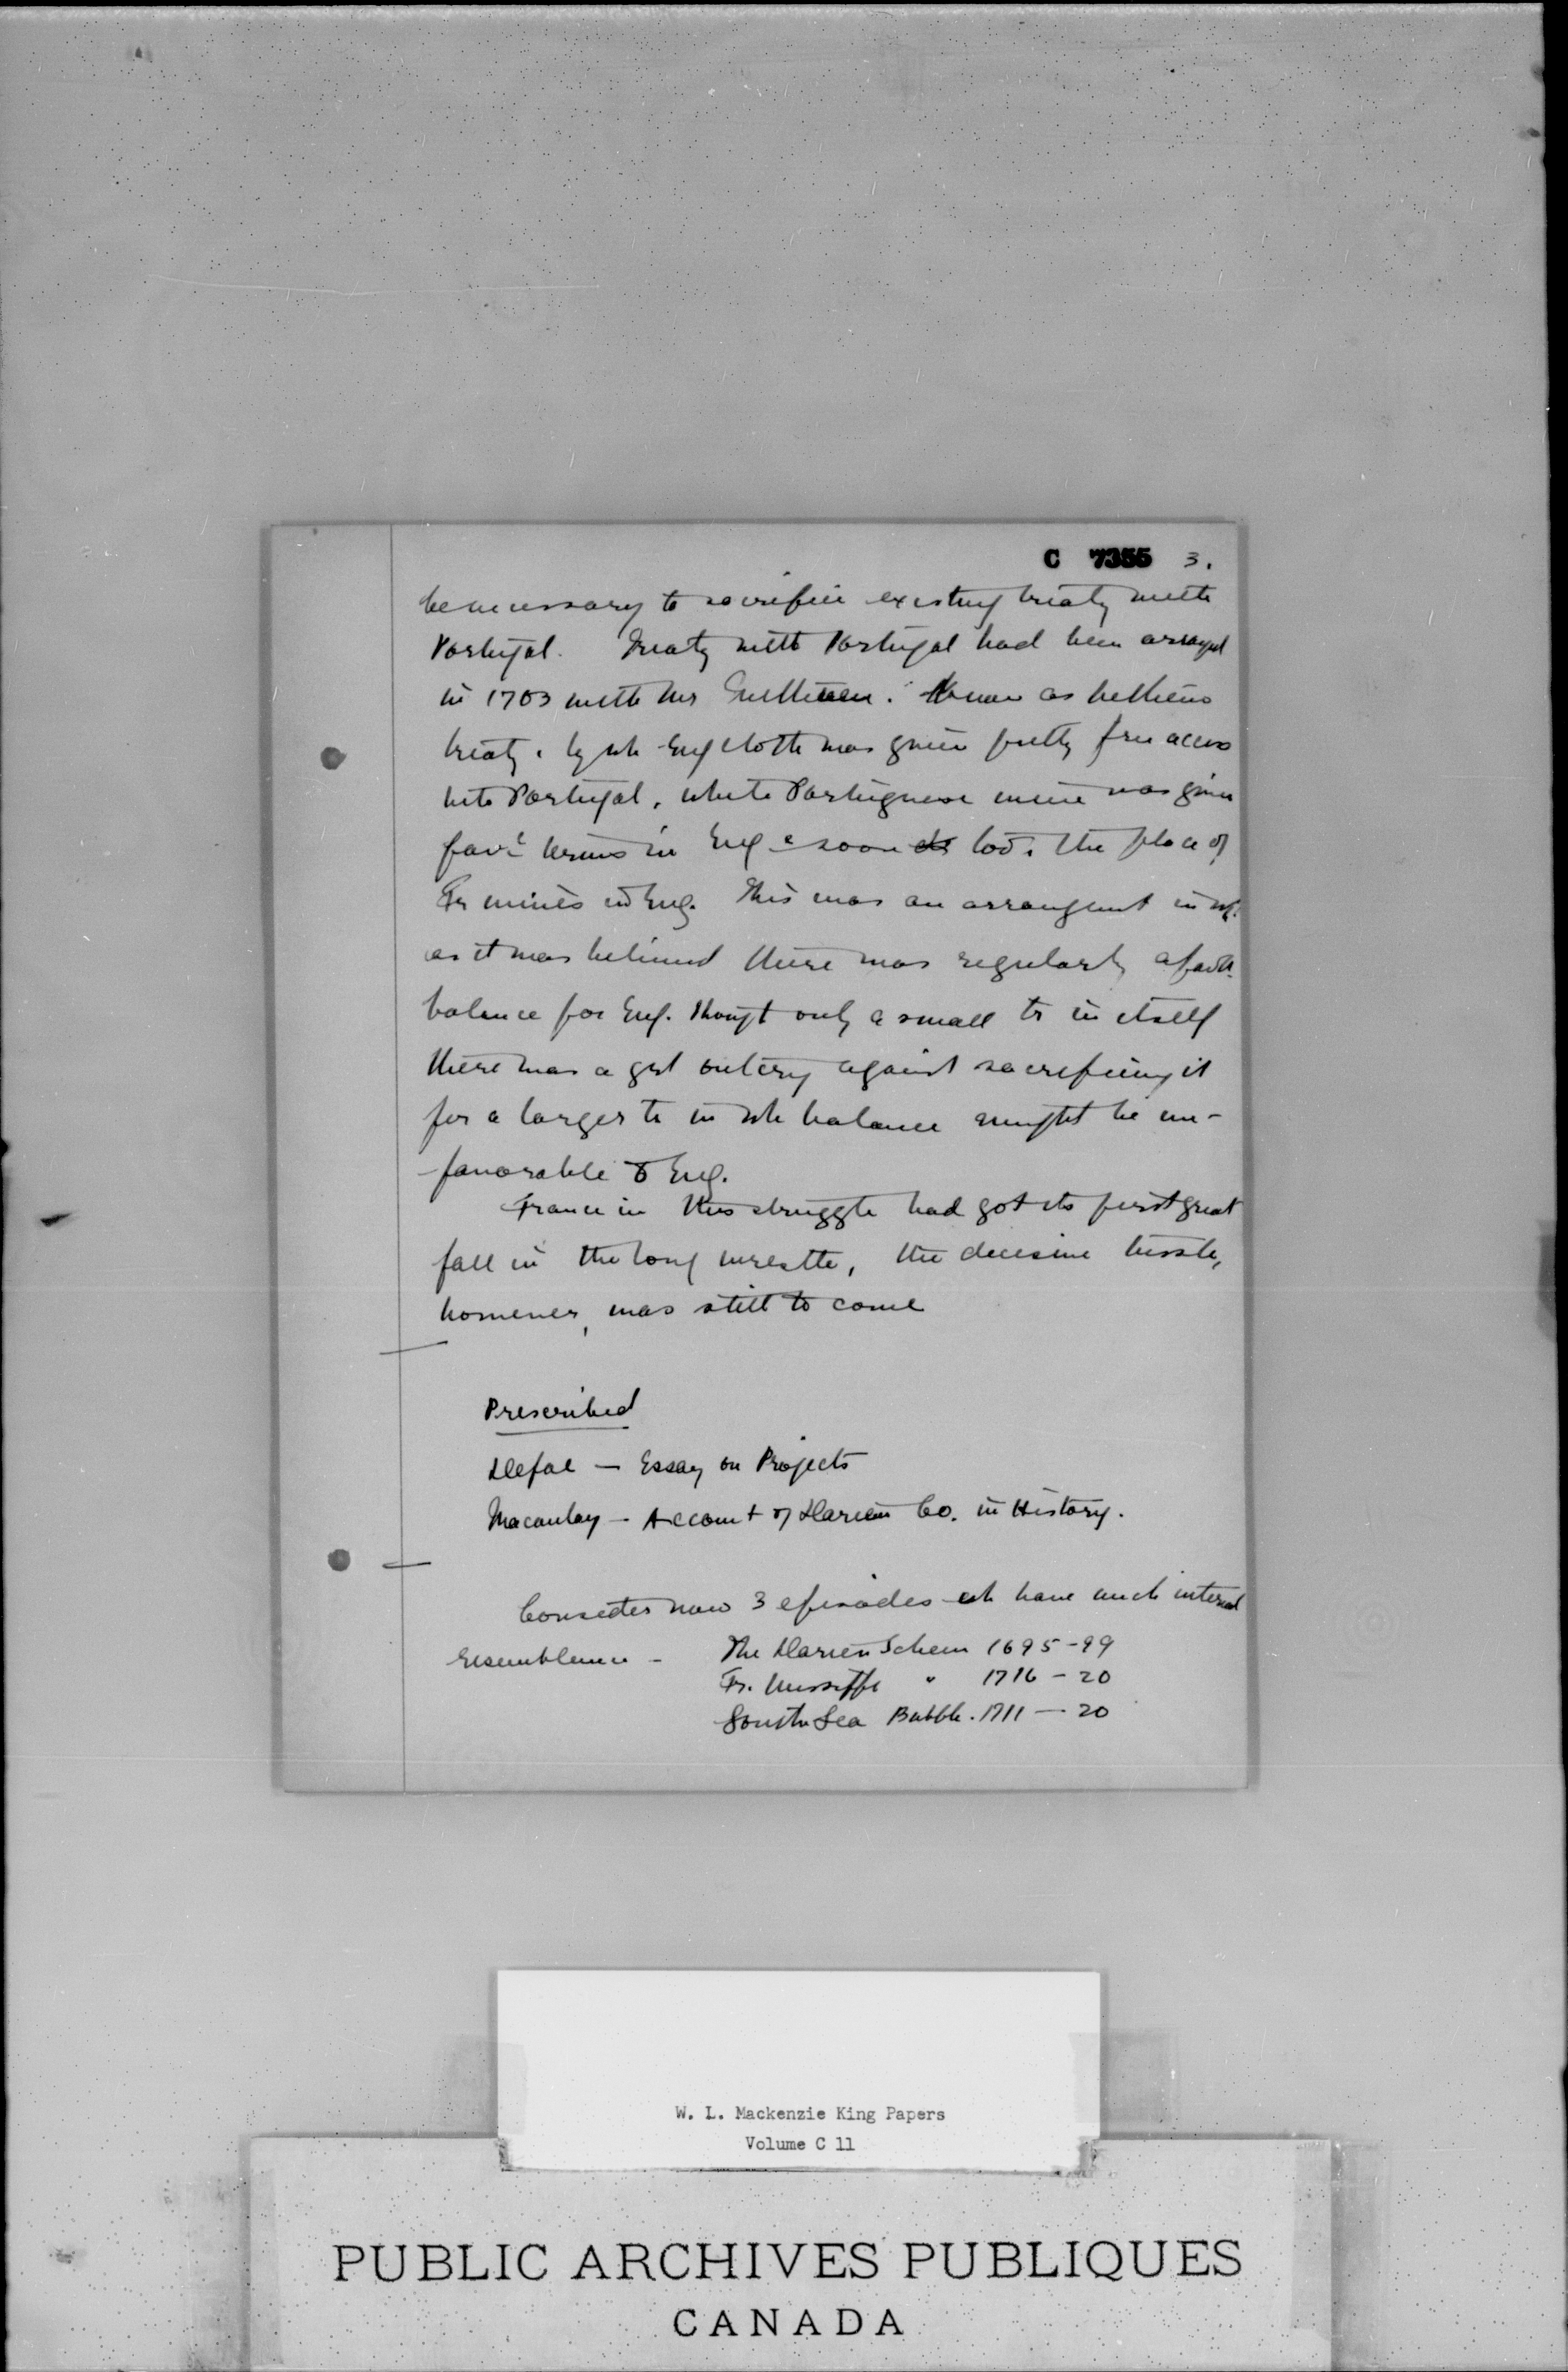 C 7355 3.
be necessary to sacrifice existing treaty with
Portugal. Treaty with Portugal had been arranged
in 1703 with Mr Methuen. Known as Methuens
treaty, by wh Eng cloth was given pretty free access
into Portugal, while Portuguese wine was given
fav. terms in Eng & soon took the place of
Fr wines in Eng. This was an arrangmt in wh.
as it was believed there was regularly a favble
balance for Eng. Thought only a small tr in itself
there was a grt outcry against sacrificing it
for a larger tr in wh balance might be un-
favorable to Eng.
France in this struggle had got its first great
fall in the long wrestle, the decisive tussle,
however, was still to come
Prescribed
Defoe — Essay on Projects
Macaulay — Account of Darien Co. in History.
Consider now 3 episodes wh have much internal
resemblance - The Darien Schem 1695-99
Fr. Mississippi " 1716 - 20
South Sea Bubble. 1711 — 20
W. L. Mackenzie King Papers
Volume C 11
PUBLIC ARCHIVES PUBLIQUES
CANADA